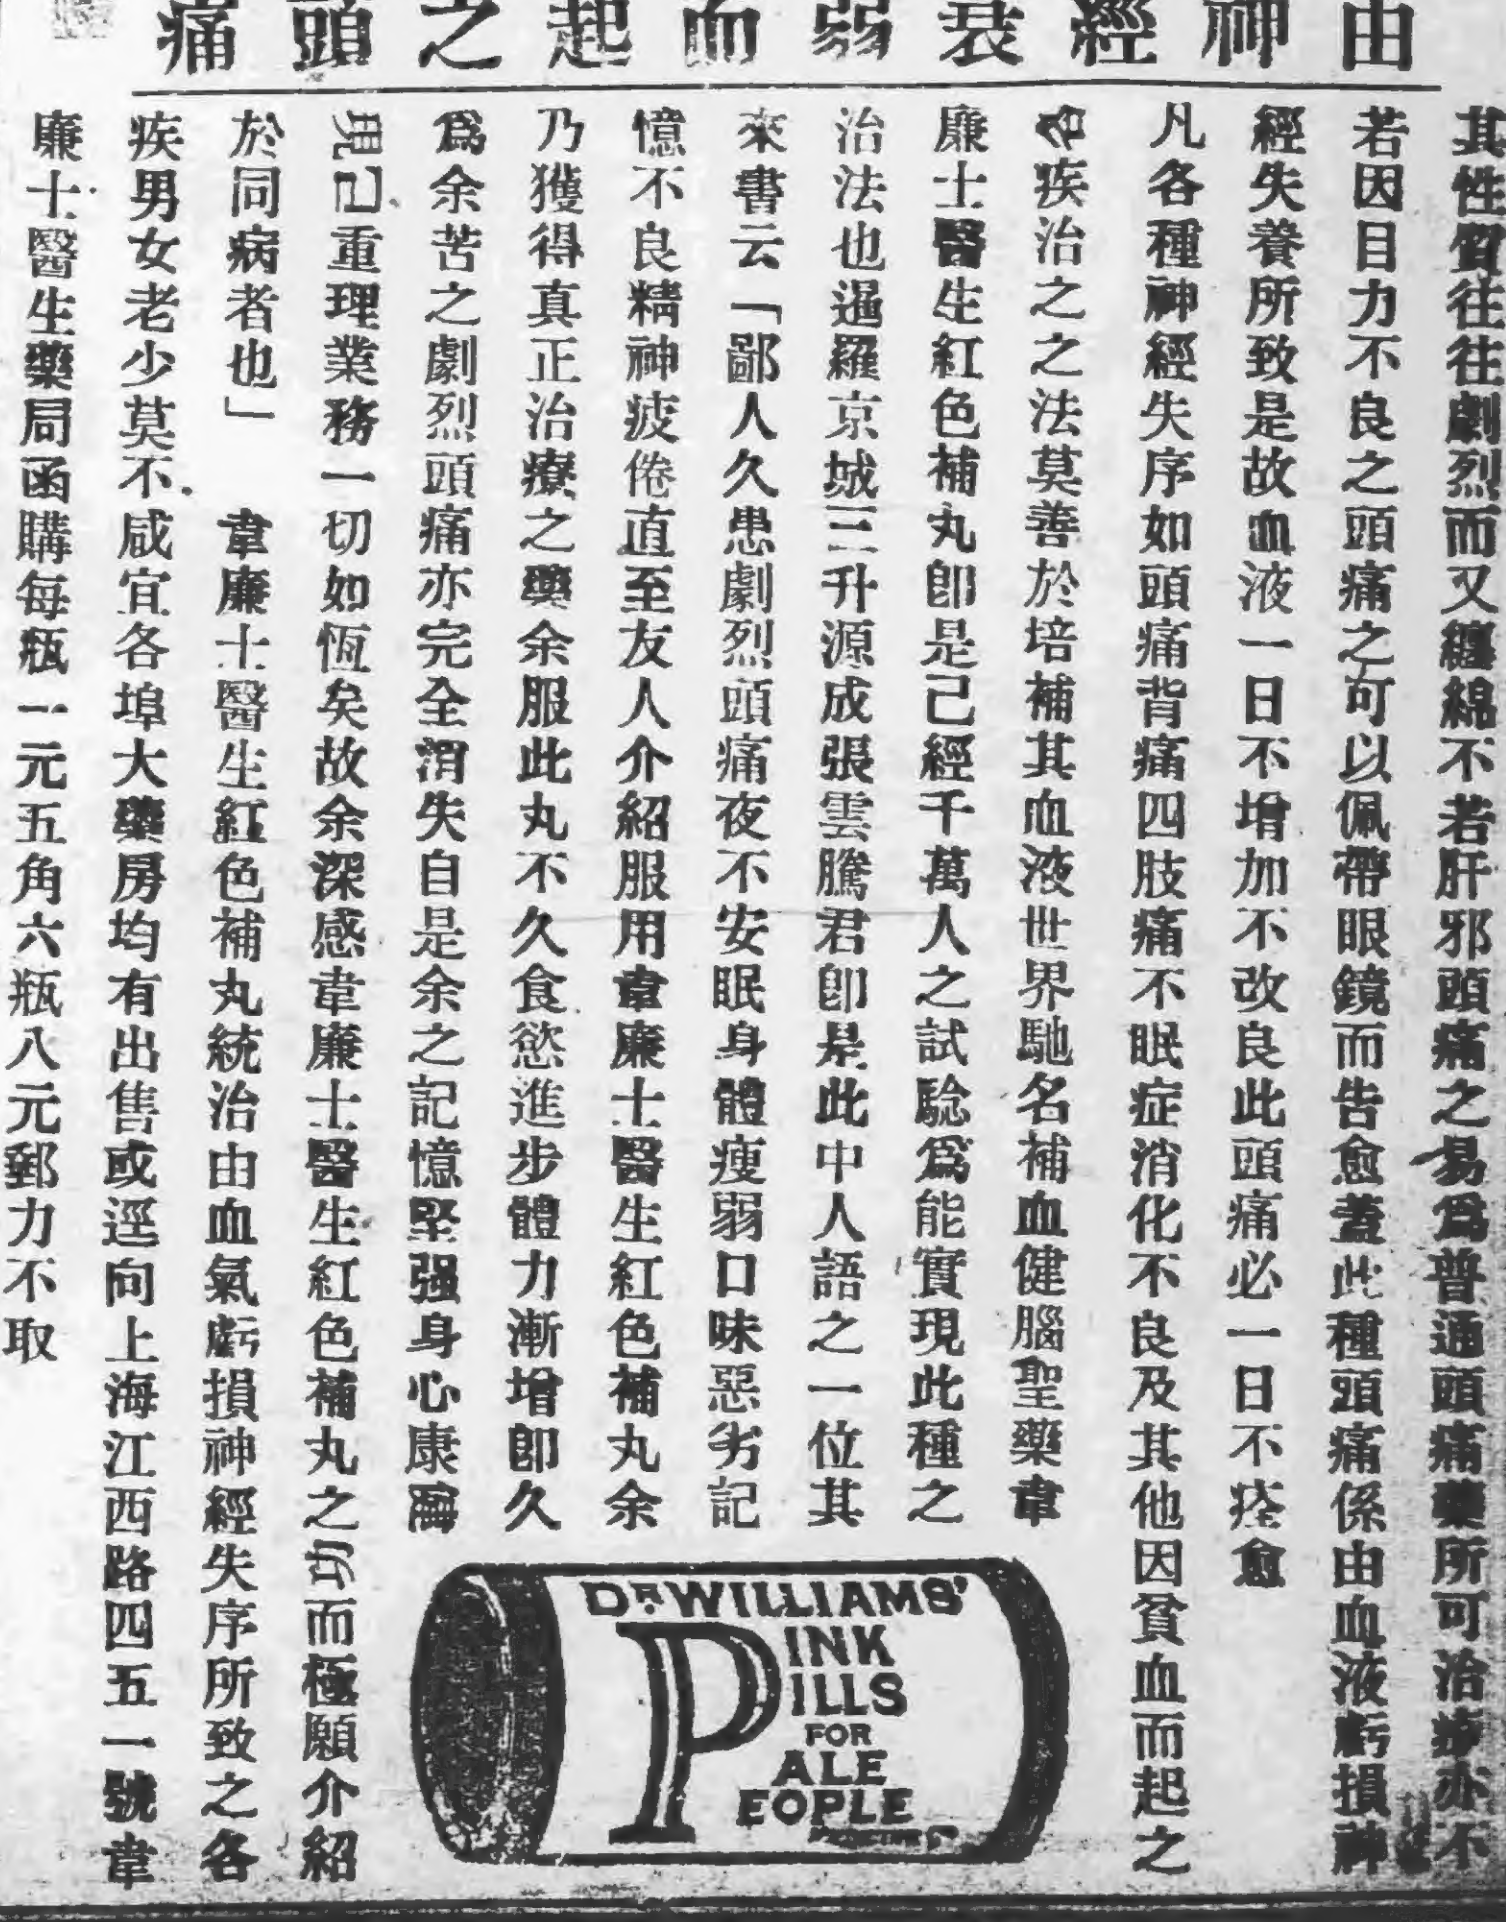 由神經衰弱而起之頭痛
其性質往往劇烈而又纏綿不若肝邪頭痛之易爲普通頭痛藥所可治療亦不
若因目力不良之頭痛之可以佩帶眼鏡而告愈蓋此種頭痛係由血液虧損神
經失養所致是故血液一日不增加不改良此頭痛必一日不痊愈
凡各種神經失序如頭痛背痛四肢痛不眠症消化不良及其他因貧血而起之
各疾治之之法莫善於培補其血液世界馳名補血健腦聖藥韋
廉士醫生紅色補丸卽是己經千萬人之試騐爲能實現此種之
治法也暹羅京城三升源成張雲騰君卽是此中人語之一位其
來書云「鄙人久患劇烈頭痛夜不安眠身體瘦弱口味惡劣記
憶不良精神疲倦直至友人介紹服用韋廉士醫生紅色補丸余
乃獲得真正治療之藥余服此丸不久食慾進步體力漸增卽久
爲余苦之劇烈頭痛亦完全消失自是余之記憶堅强身心康
現己重理業務一切如恆矣故余深感韋廉士醫生紅色補丸之功而極願介紹
於同病者也」 韋廉士醫生紅色補丸統治由血氣虧損神經失序所致之各
疾男女老少莫不咸宜各埠大藥房均有出售或逕向上海江西路四五一號韋
廉士醫生藥局函購每瓶一元五角六瓶八元郵力不取
DR. WILLIAMS'
PINK
PILLS
FOR
PALE
PEOPLE